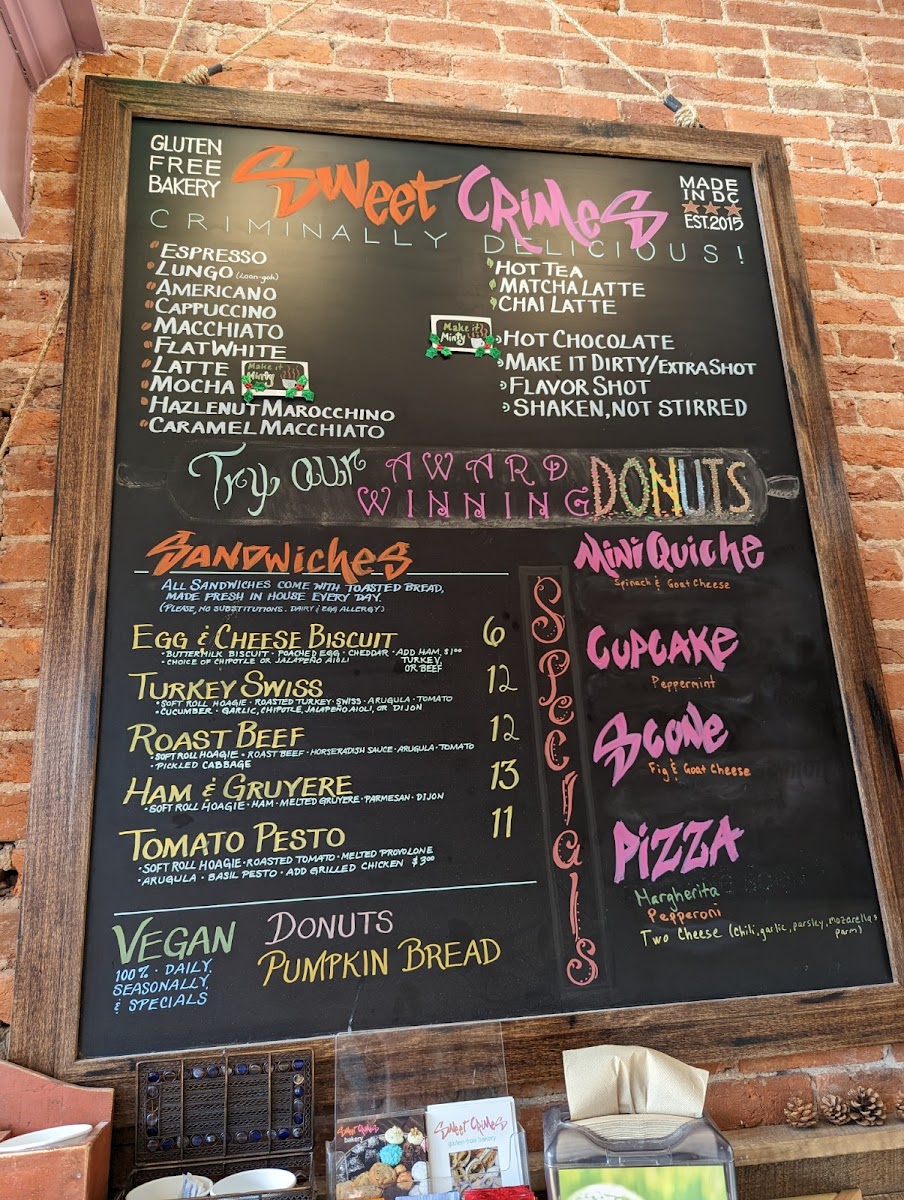 GLUTEN
FREE
BAKERY
Sweet CRIMeS
MADE
IN DC
EST. 2015
CRIMINALLY DELICIOUS!
ESPRESSO
LUNGO (Loon-goh)
AMERICANO
CAPPUCCINO
MACCHIATO
FLAT WHITE
LATTE
MOCHA
Make it
Minty
HAZLENUT MAROCCHINO
CARAMEL MACCHIATO
HOT TEA
MATCHA LATTE
CHAI LATTE
Make it
Minty
HOT CHOCOLATE
MAKE IT DIRTY/EXTRA SHOT
FLAVOR SHOT
SHAKEN, NOT STIRRED
Try our AWARD
WINNING DONUTS
SANDWICHES
ALL SANDWICHES COME WITH TOASTED BREAD,
MADE FRESH IN HOUSE EVERY DAY.
(PLEASE, NO SUBSTITUTIONS. DAIRY & EGG ALLERGY)
EGG & CHEESE BISCUIT 6
• BUTTERMILK BISCUIT • POACHED EGG • CHEDDAR • ADD HAM, $1.00
TURKEY,
OR BEEF
• CHOICE OF CHIPOTLE OR JALAPEÑO AIOLI
TURKEY SWISS 12
• SOFT ROLL HOAGIE • ROASTED TURKEY • SWISS • ARUGULA • TOMATO
• CUCUMBER • GARLIC, CHIPOTLE, JALAPEÑO AIOLI, OR DIJON
ROAST BEEF 12
• SOFT ROLL HOAGIE • ROAST BEEF • HORSERADISH SAUCE • ARUGULA • TOMATO
• PICKLED CABBAGE
HAM & GRUYERE 13
• SOFT ROLL HOAGIE • HAM • MELTED GRUYERE • PARMESAN • DIJON
TOMATO PESTO 11
• SOFT ROLL HOAGIE • ROASTED TOMATO • MELTED PROVOLONE
• ARUGULA • BASIL PESTO • ADD GRILLED CHICKEN $3.00
VEGAN
100% • DAILY,
SEASONALLY,
& SPECIALS
DONUTS
PUMPKIN BREAD
Specials
Mini Quiche
Spinach & Goat Cheese
CUPCAKE
Peppermint
Scone
Fig & Goat Cheese
PiZZA
Margherita
Pepperoni
Two Cheese (Chili, garlic, parsley, mozarella,
parm)
Sweet CRIMeS
bakery
Sweet CRIMeS
gluten-free bakery